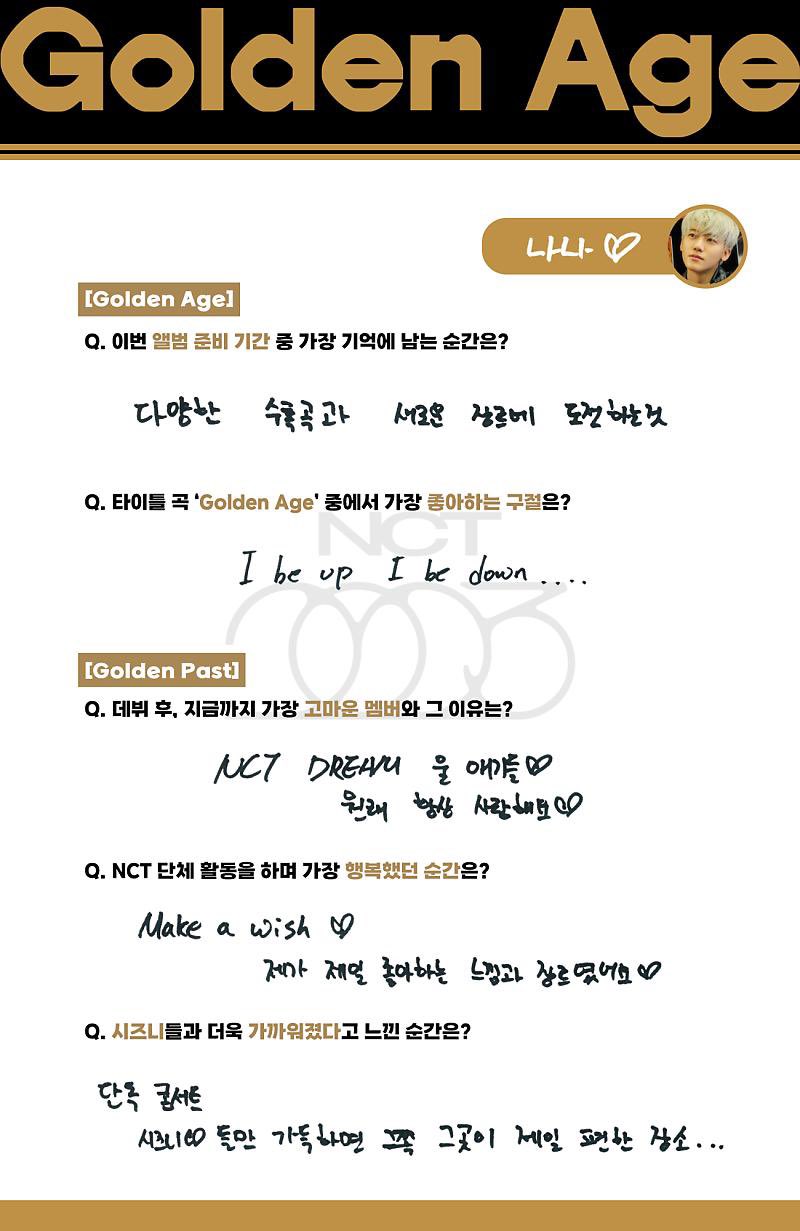 Golden Age
나나 ♡
[Golden Age]
Q. 이번 앨범 준비 기간 중 가장 기억에 남는 순간은?
다양한 수록곡과 새로운 장르에 도전하는것
Q. 타이틀 곡 ‘Golden Age’ 중에서 가장 좋아하는 구절은?
NCT
I be up I be down ....
2023
[Golden Past]
Q. 데뷔 후, 지금까지 가장 고마운 멤버와 그 이유는?
NCT DREAM 울 애기들♡
원래 항상 사랑해요♡
Q. NCT 단체 활동을 하며 가장 행복했던 순간은?
Make a wish ♡
제가 제일 좋아하는 느낌과 장르였어요♡
Q. 시즈니들과 더욱 가까워졌다고 느낀 순간은?
단독 콘서트
시즈니♡들만 가득하면 그곳이 제일 편한 장소...